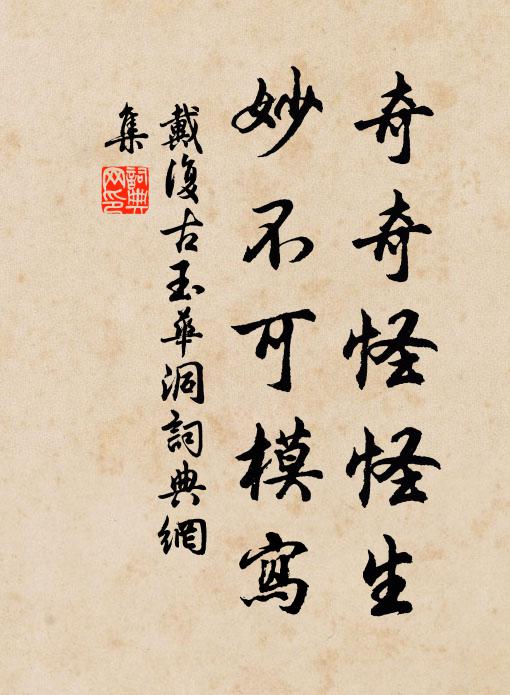 奇奇怪怪生
妙不可模寫
戴復古玉華洞詞典網
集
詞典
网印